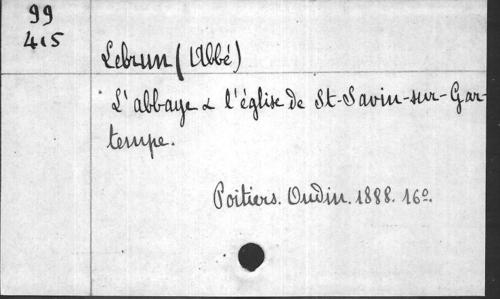 99
415
Lebrun (L'Abbé)
L'abbaye & l'église de St-Savin-sur-Gar-
tempe.
Poitiers. Oudin. 1888. 16º.